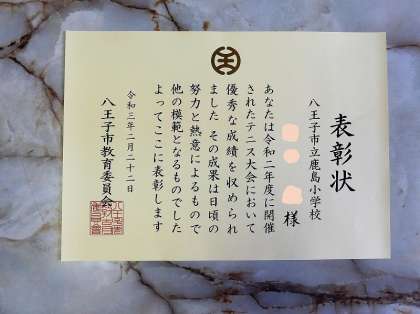 表彰状
八王子市立鹿島小学校
様
あなたは令和二年度に開催
されたテニス大会において
優秀な成績を収められ
ました その成果は日頃の
努力と熱意によるもので
他の模範となるものでした
よってここに表彰します
令和三年二月二十二日
八王子市教育委員会